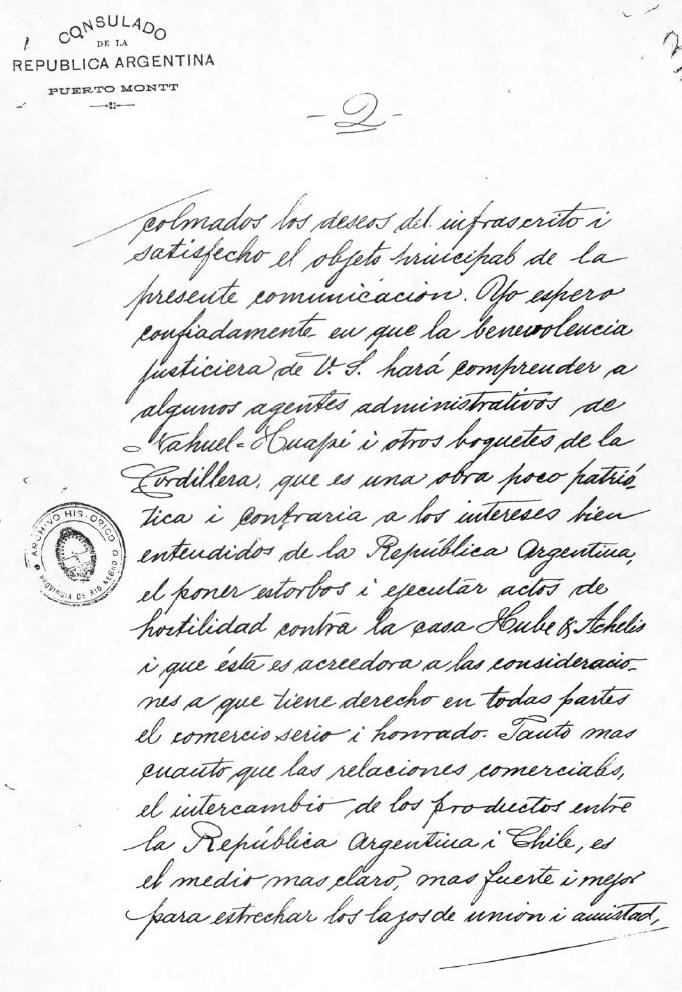 CONSULADO
DE LA
REPUBLICA ARGENTINA
PUERTO MONTT
- 2 -
colmados los deseos del infrascrito i
satisfecho el objeto principal de la
presente comunicación. Yo espero
confiadamente en que la benevolencia
justiciera de V. S. hará comprender a
algunos agentes administrativos de
Nahuel-Huapí i otros boquetes de la
Cordillera, que es una obra poco patrió-
tica i contraria a los intereses bien
entendidos de la República Argentina,
el poner estorbos i ejecutar actos de
hostilidad contra la casa Hube & Achelis
i que ésta es acreedora a las consideracio-
nes a que tiene derecho en todas partes
el comercio serio i honrado. Tanto mas
cuanto que las relaciones comerciales,
el intercambio de los productos entre
la República Argentina i Chile, es
el medio mas claro, mas fuerte i mejor
para estrechar los lazos de unión i amistad,
ARCHIVO HISTORICO
PROVINCIA DE RIO NEGRO